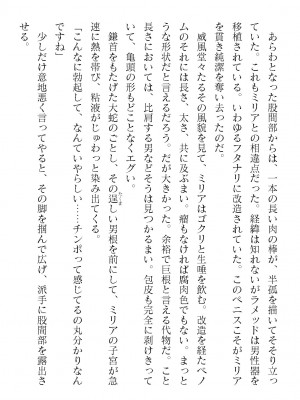 あらわとなった股間部からは、一本の長い肉の棒が、半弧を描いてそそり立っ
ていた。これもミリアとの相違点だった。経緯は知れないがラメッドは男性器を
移植されている。いわゆるフタナリに改造されていた。このペニスこそがミリア
を貫き純潔を奪い去ったのだ。
威風堂々たるその風貌を見て、ミリアはゴクリと生唾を飲む。改造を経たペノ
ムのそれには長さ、太さ、共に及ぶまい。瘤もなければ腐肉色でもない。まっと
うな形状だと言えるだろう。だが大きかった。余裕で巨根と言える代物だ。こと
長さにおいては、比肩する男などそうは見つかるまい。包皮も完全に剥けきって
いて、亀頭の形もどことなくエグい。
鎌首をもたげた大蛇のごとし、その逞しい男根を前にして、ミリアの子宮が急
速に熱を帯び、粘液がじゅわっと染み出てくる。
「こんなに勃起して、なんていやらしい……チンポって感じてるの丸分かりなん
ですね」
少しだけ意地悪く言ってやると、その脚を掴んで広げ、派手に股間部を露出さ
せる。